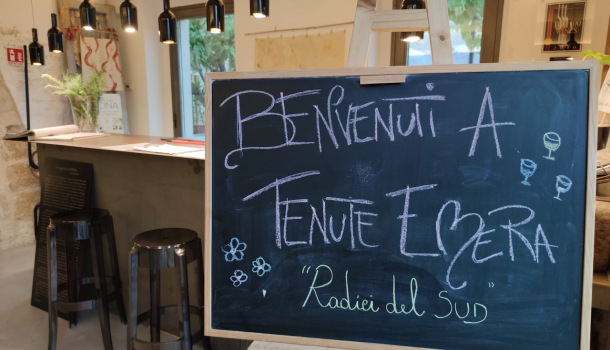 BENVENUTI A
TENUTE EMERA
"Radici del SUD"